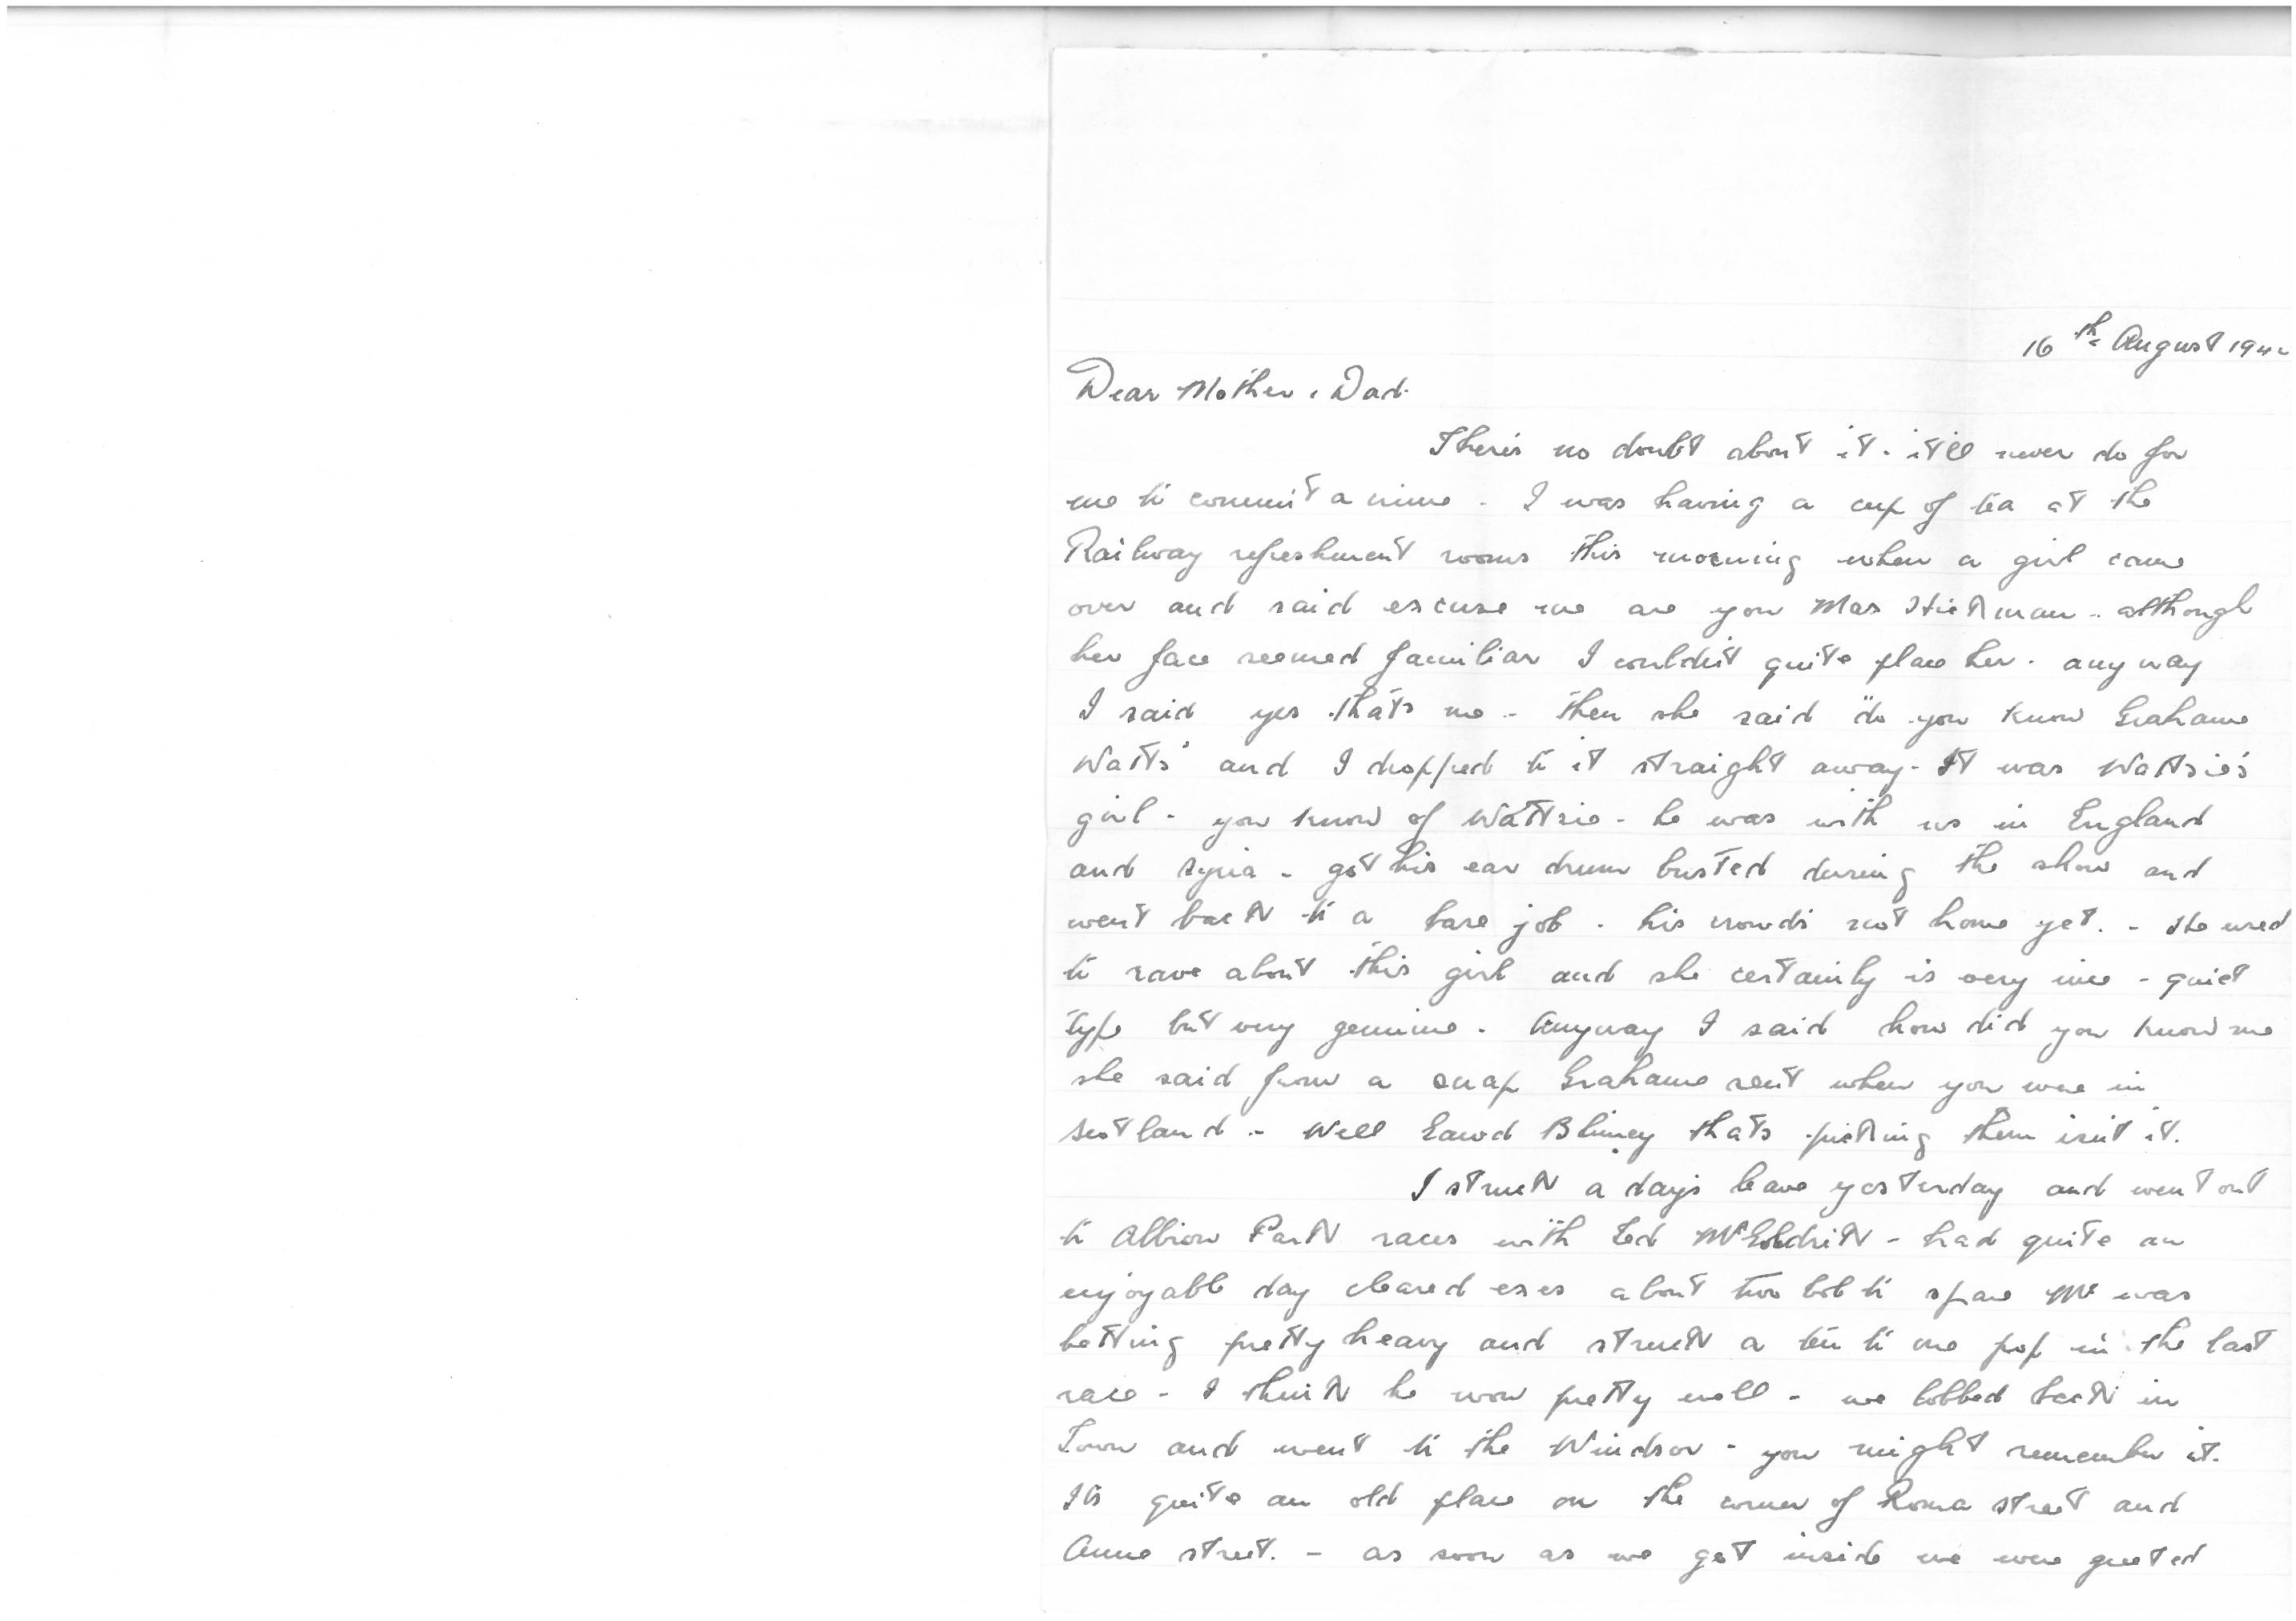 16th August 194
Dear Mother & Dad.
There's no doubt about it - it'll never do for
me to commit a crime - I was having a cup of tea at the
Railway refreshment rooms this morning when a girl came
over and said excuse me are you Max Hickman - although
her face seemed familiar I couldn't quite place her - any way
I said yes that's me - then she said "do you know Grahame
Watts" and I dropped to it straight away - It was Wattsie's
girl - you know of Wattsie - he was with us in England
and Syria - got his ear drum busted during the show and
went back to a base job - his crowd's not home yet. - He used
to rave about this girl and she certainly is very nice - quiet
type but very genuine - Anyway I said how did you know me
she said from a snap Grahame sent when you were in
Scotland - Well Gawd Blimey thats picking them isn't it.
I struck a day's leave yesterday and went out
to Albion Park races with Ted - had quite an
enjoyable day cleared exes about two bob to spare Mc was
betting pretty heavy and struck a ten to one pop in the last
race - I think he won pretty well - we lobbed back in
Town and went to the Windsor - you might remember it.
Its quite an old place on the corner of Roma street and
Anne street. - as soon as we got inside we were greeted